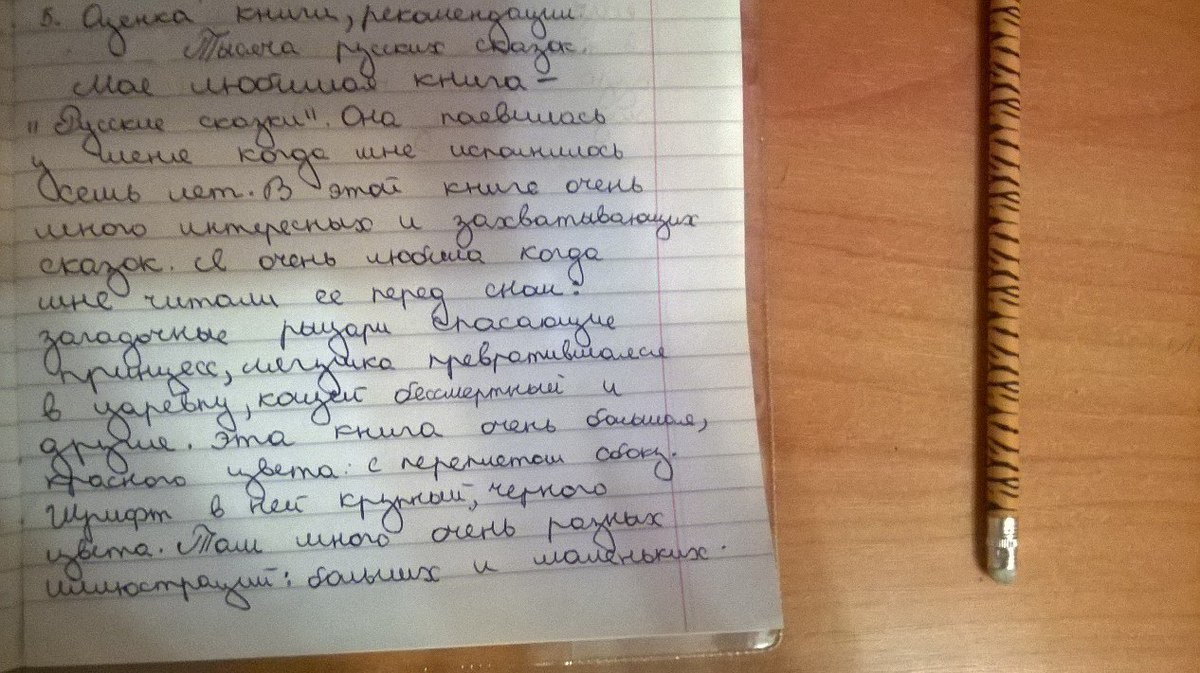 5. Оценка книги, рекомендации.
Тысяча русских сказок.
Мое любимая книга –
"Русские сказки". Она паевилась
у мене когда мне исполнилось
семь лет. В этой книге очень
много интересных и захватывающих
сказок. Я очень любила когда
мне читали ее перед сном:
загадочные рыцари спасающие
принцесс, лягушка превратившаяся
в царевну, кощей бессмертный и
другие. Эта книга очень большая,
красного цвета с переплетом сбоку.
Шрифт в ней крупный, черного
цвета. Там много очень разных
иллюстраций: больших и маленьких.